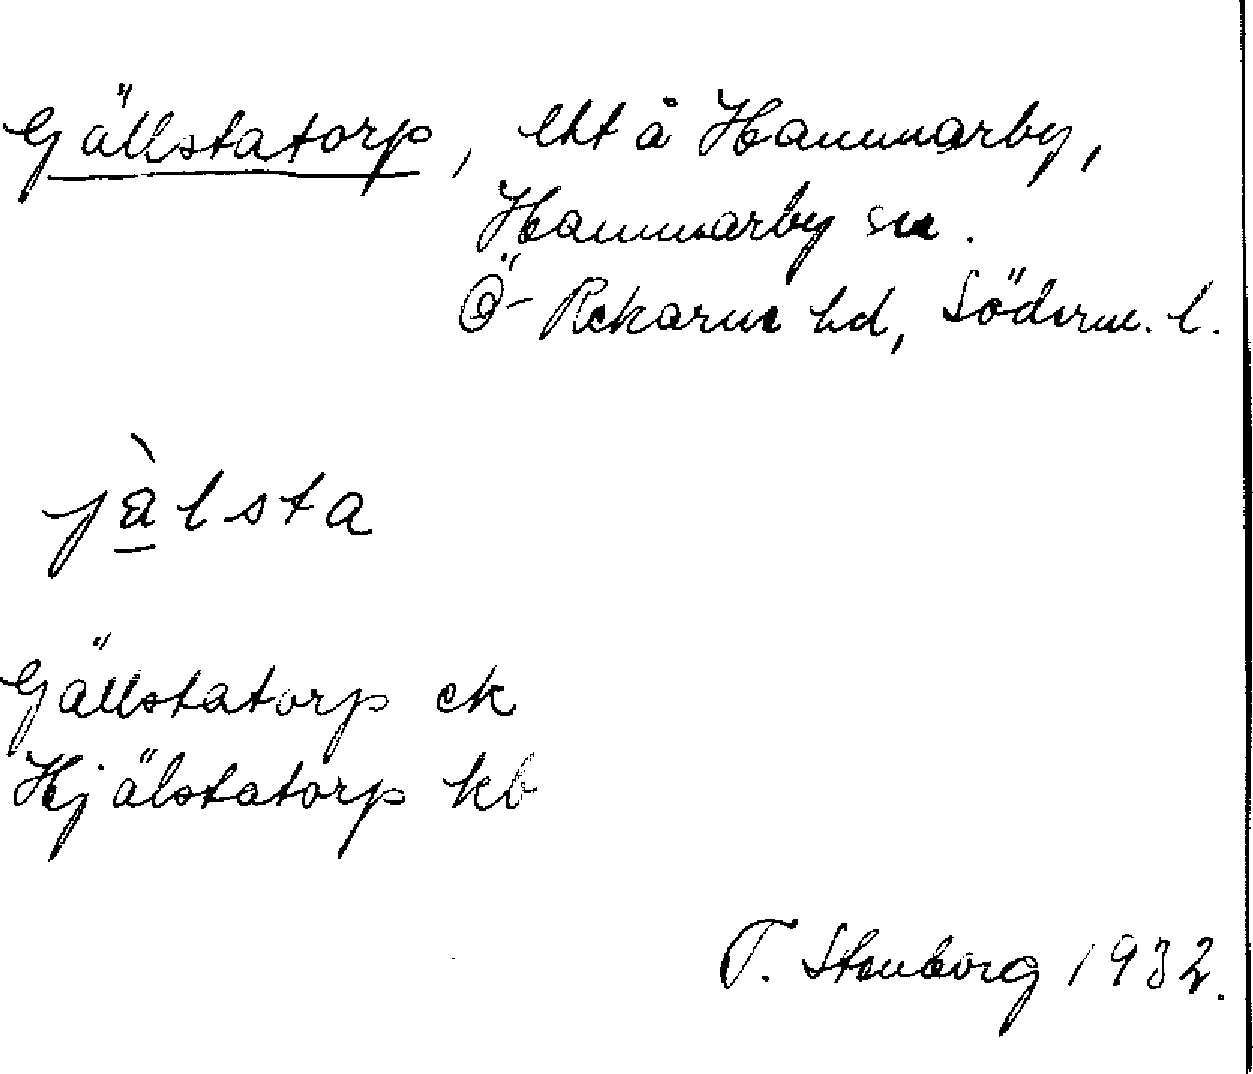 Gällstatorp, lht å Hammarby,
Hammarby sn.
Ö-Rekarne hd, Söderm. l.
jàlsta
Gällstatorp ek
Hjälstatorp kb
T. Stenborg 1932.